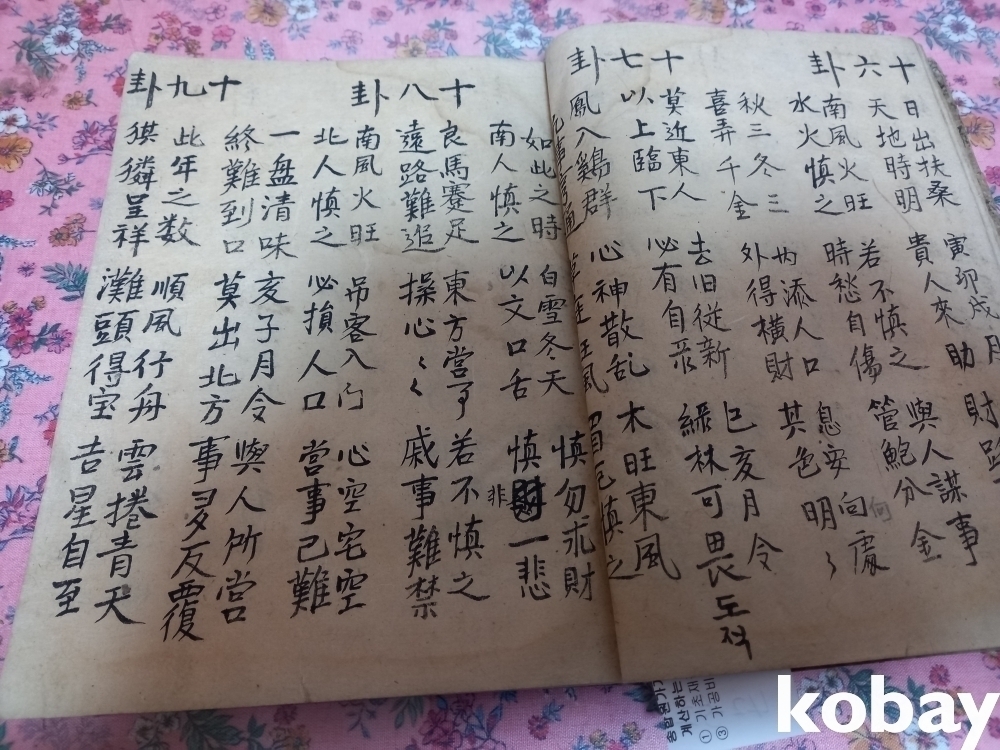 十六卦
日出扶桑 寅卯戌月 財
天地時明 貴人來助
南風火旺 若不慎之 與人謀事
水火慎之 時愁自傷 管鮑分金
秋三冬三 内添人口 息安向處
何
喜弄千金 外得橫財 其色明々
十七卦
莫近東人 去旧從新 巳亥月令
以上臨下 必有自 綠林可畏 도적
鳳入鷄群 心神散乱 木旺東風
狂風 慎之
如此之時 白雪冬天 慎勿求財
南人慎之 以文口舌 慎 一悲
非
十八卦
良馬蹇足 東方當事 若不慎之
遠路難追 操心々々 戚事難禁
南風火旺 吊客入门 心空宅空
北人慎之 必損人口 當事己難
一盘清味 亥子月令 與人所営
終難到口 莫出北方 事多反覆
十九卦
此年之数 順風行舟 雲捲青天
猉獜呈祥 灘頭得宝 吉星自至
계산하는
kobay